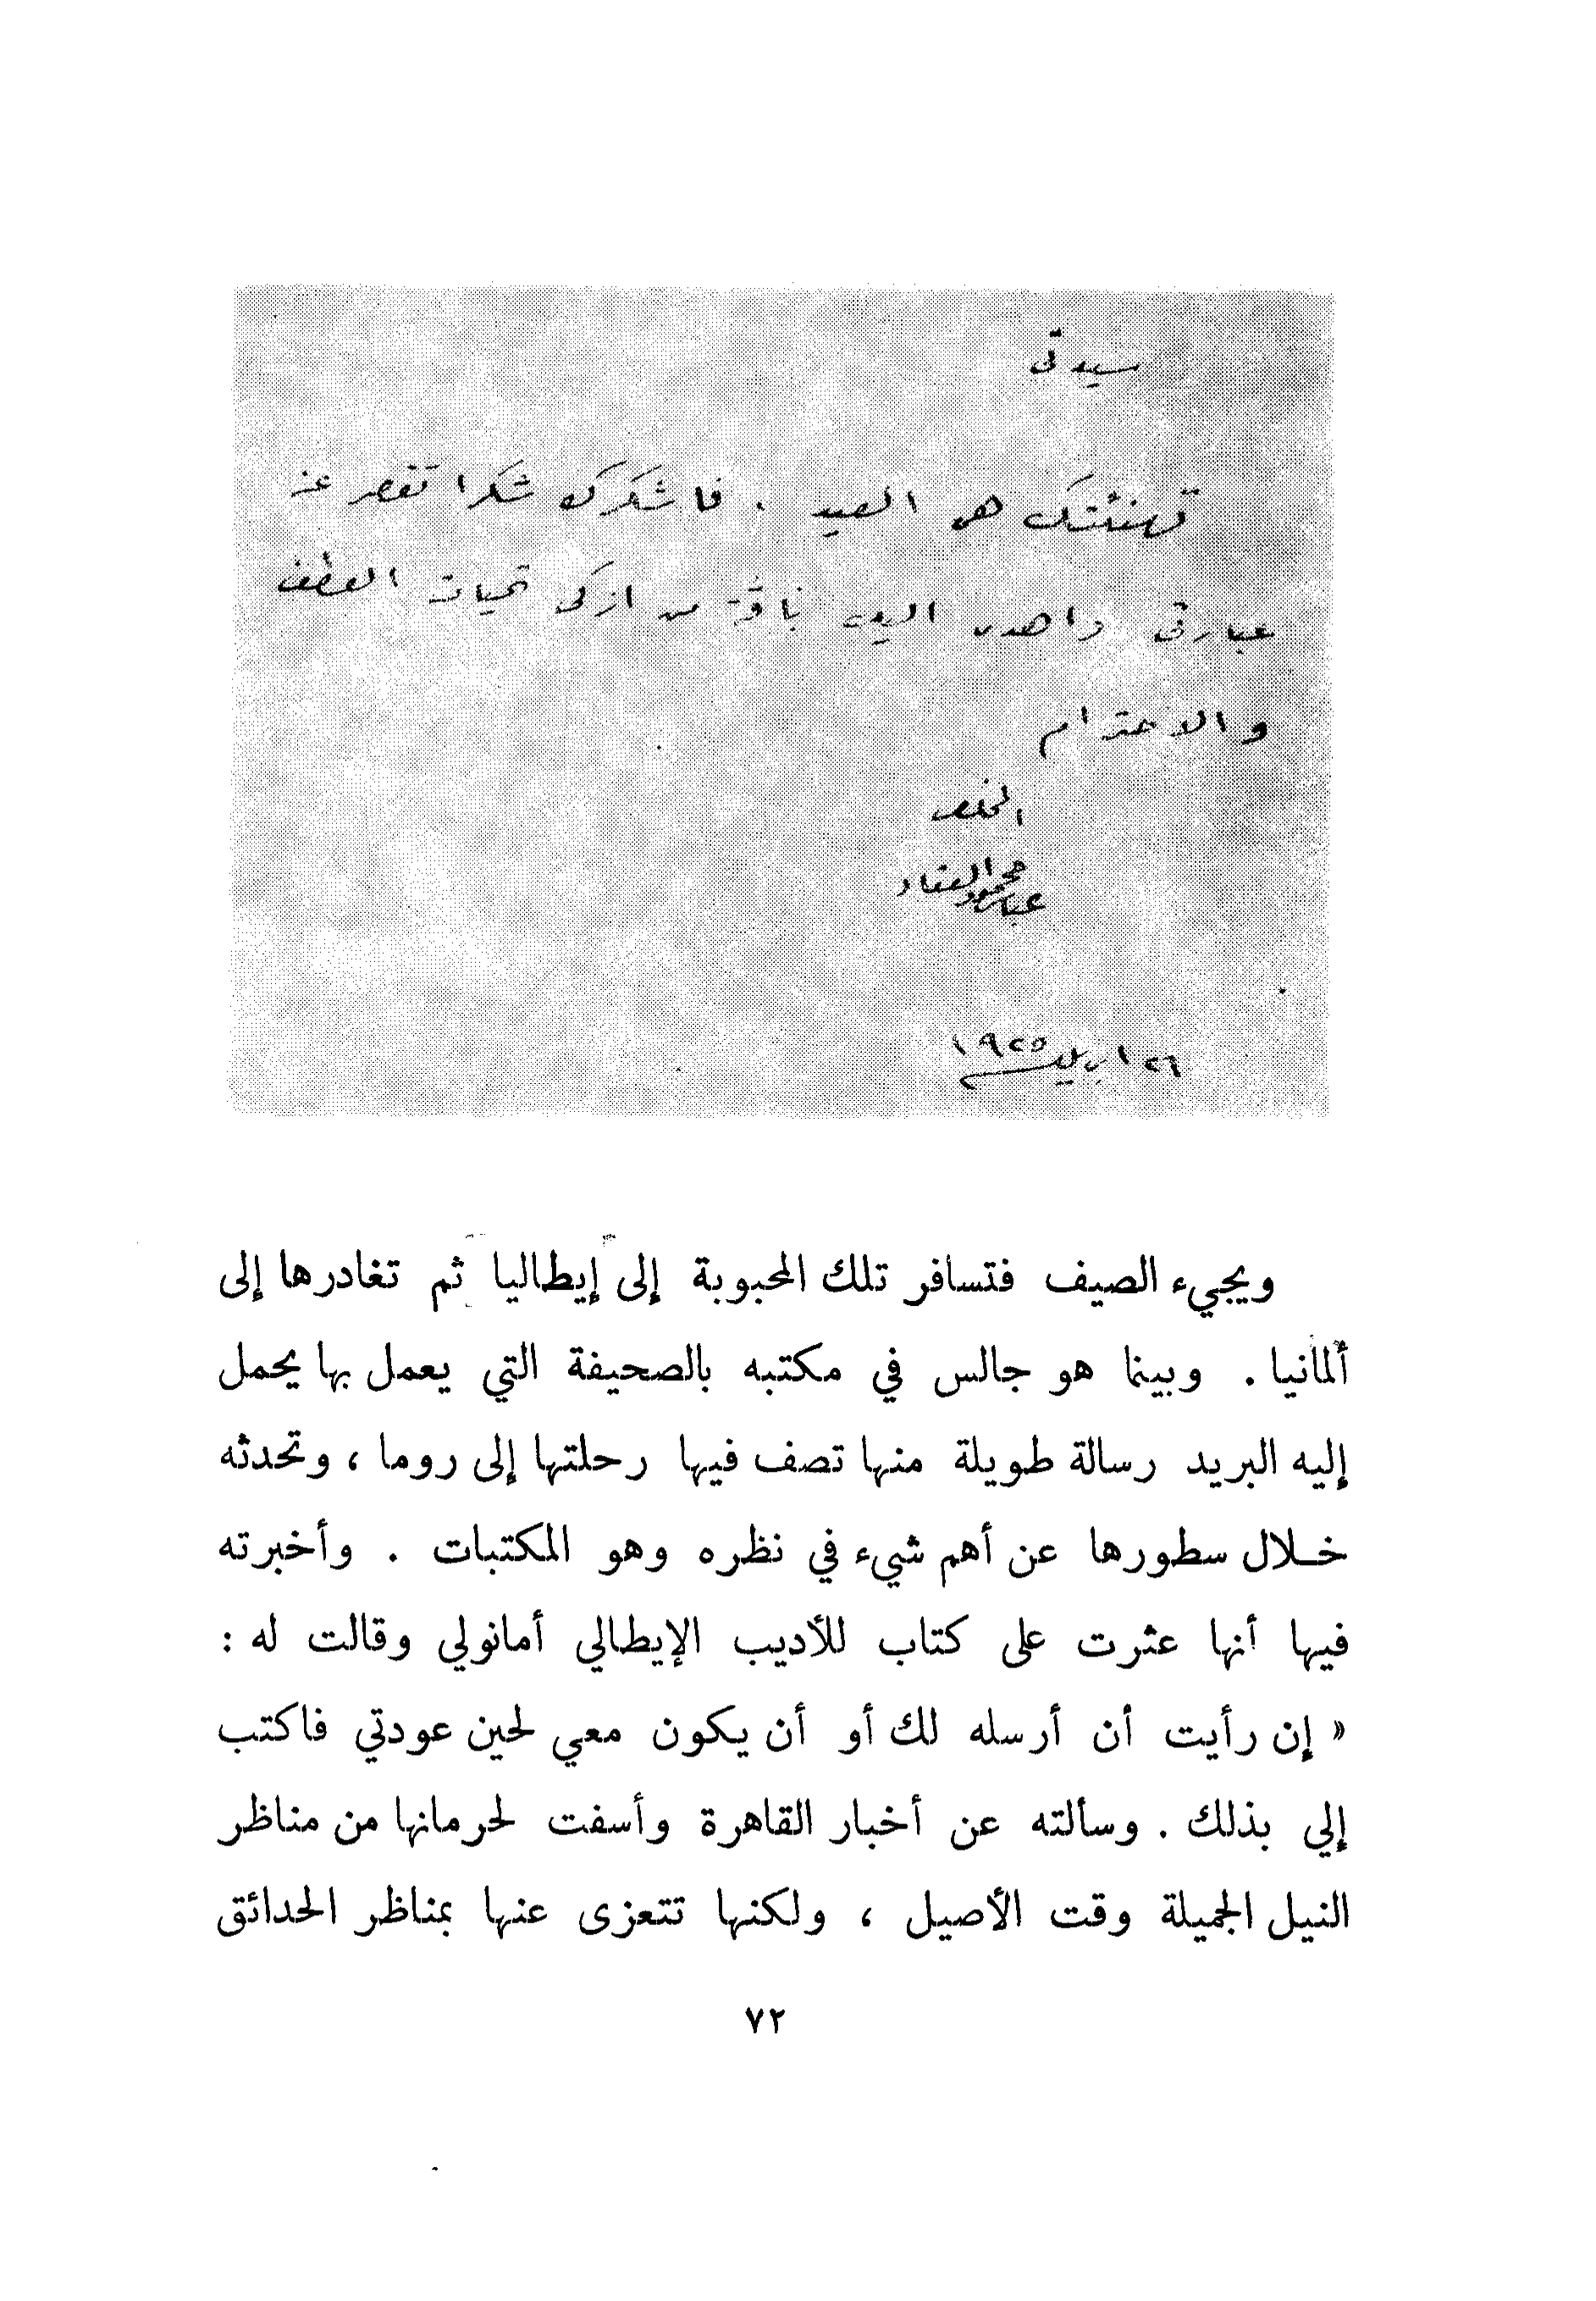 سيدتى
تهنئتك هى العيد . فاشكرك شكرا تقصر عنه
عبارتى واهدى اليك باقة من ازكى تحيات العطف
والاحترام
المخلص
عباس محمود العقاد
٢٦ ابريل ١٩٢٥
ويجيء الصيف فتسافر تلك المحبوبة إلى إيطاليا ثم تغادرها إلى
ألمانيا . وبينما هو جالس في مكتبه بالصحيفة التي يعمل بها يحمل
إليه البريد رسالة طويلة منها تصف فيها رحلتها إلى روما ، وتحدثه
خـلال سطورها عن أهم شيء في نظره وهو المكتبات . وأخبرته
فيها أنها عثرت على كتاب للأديب الإيطالي أمانولي وقالت له :
« إن رأيت أن أرسله لك أو أن يكون معي لحين عودتي فاكتب
إلي بذلك . وسألته عن أخبار القاهرة وأسفت لحرمانها من مناظر
النيل الجميلة وقت الأصيل ، ولكنها تتعزى عنها بمناظر الحدائق
٧٢